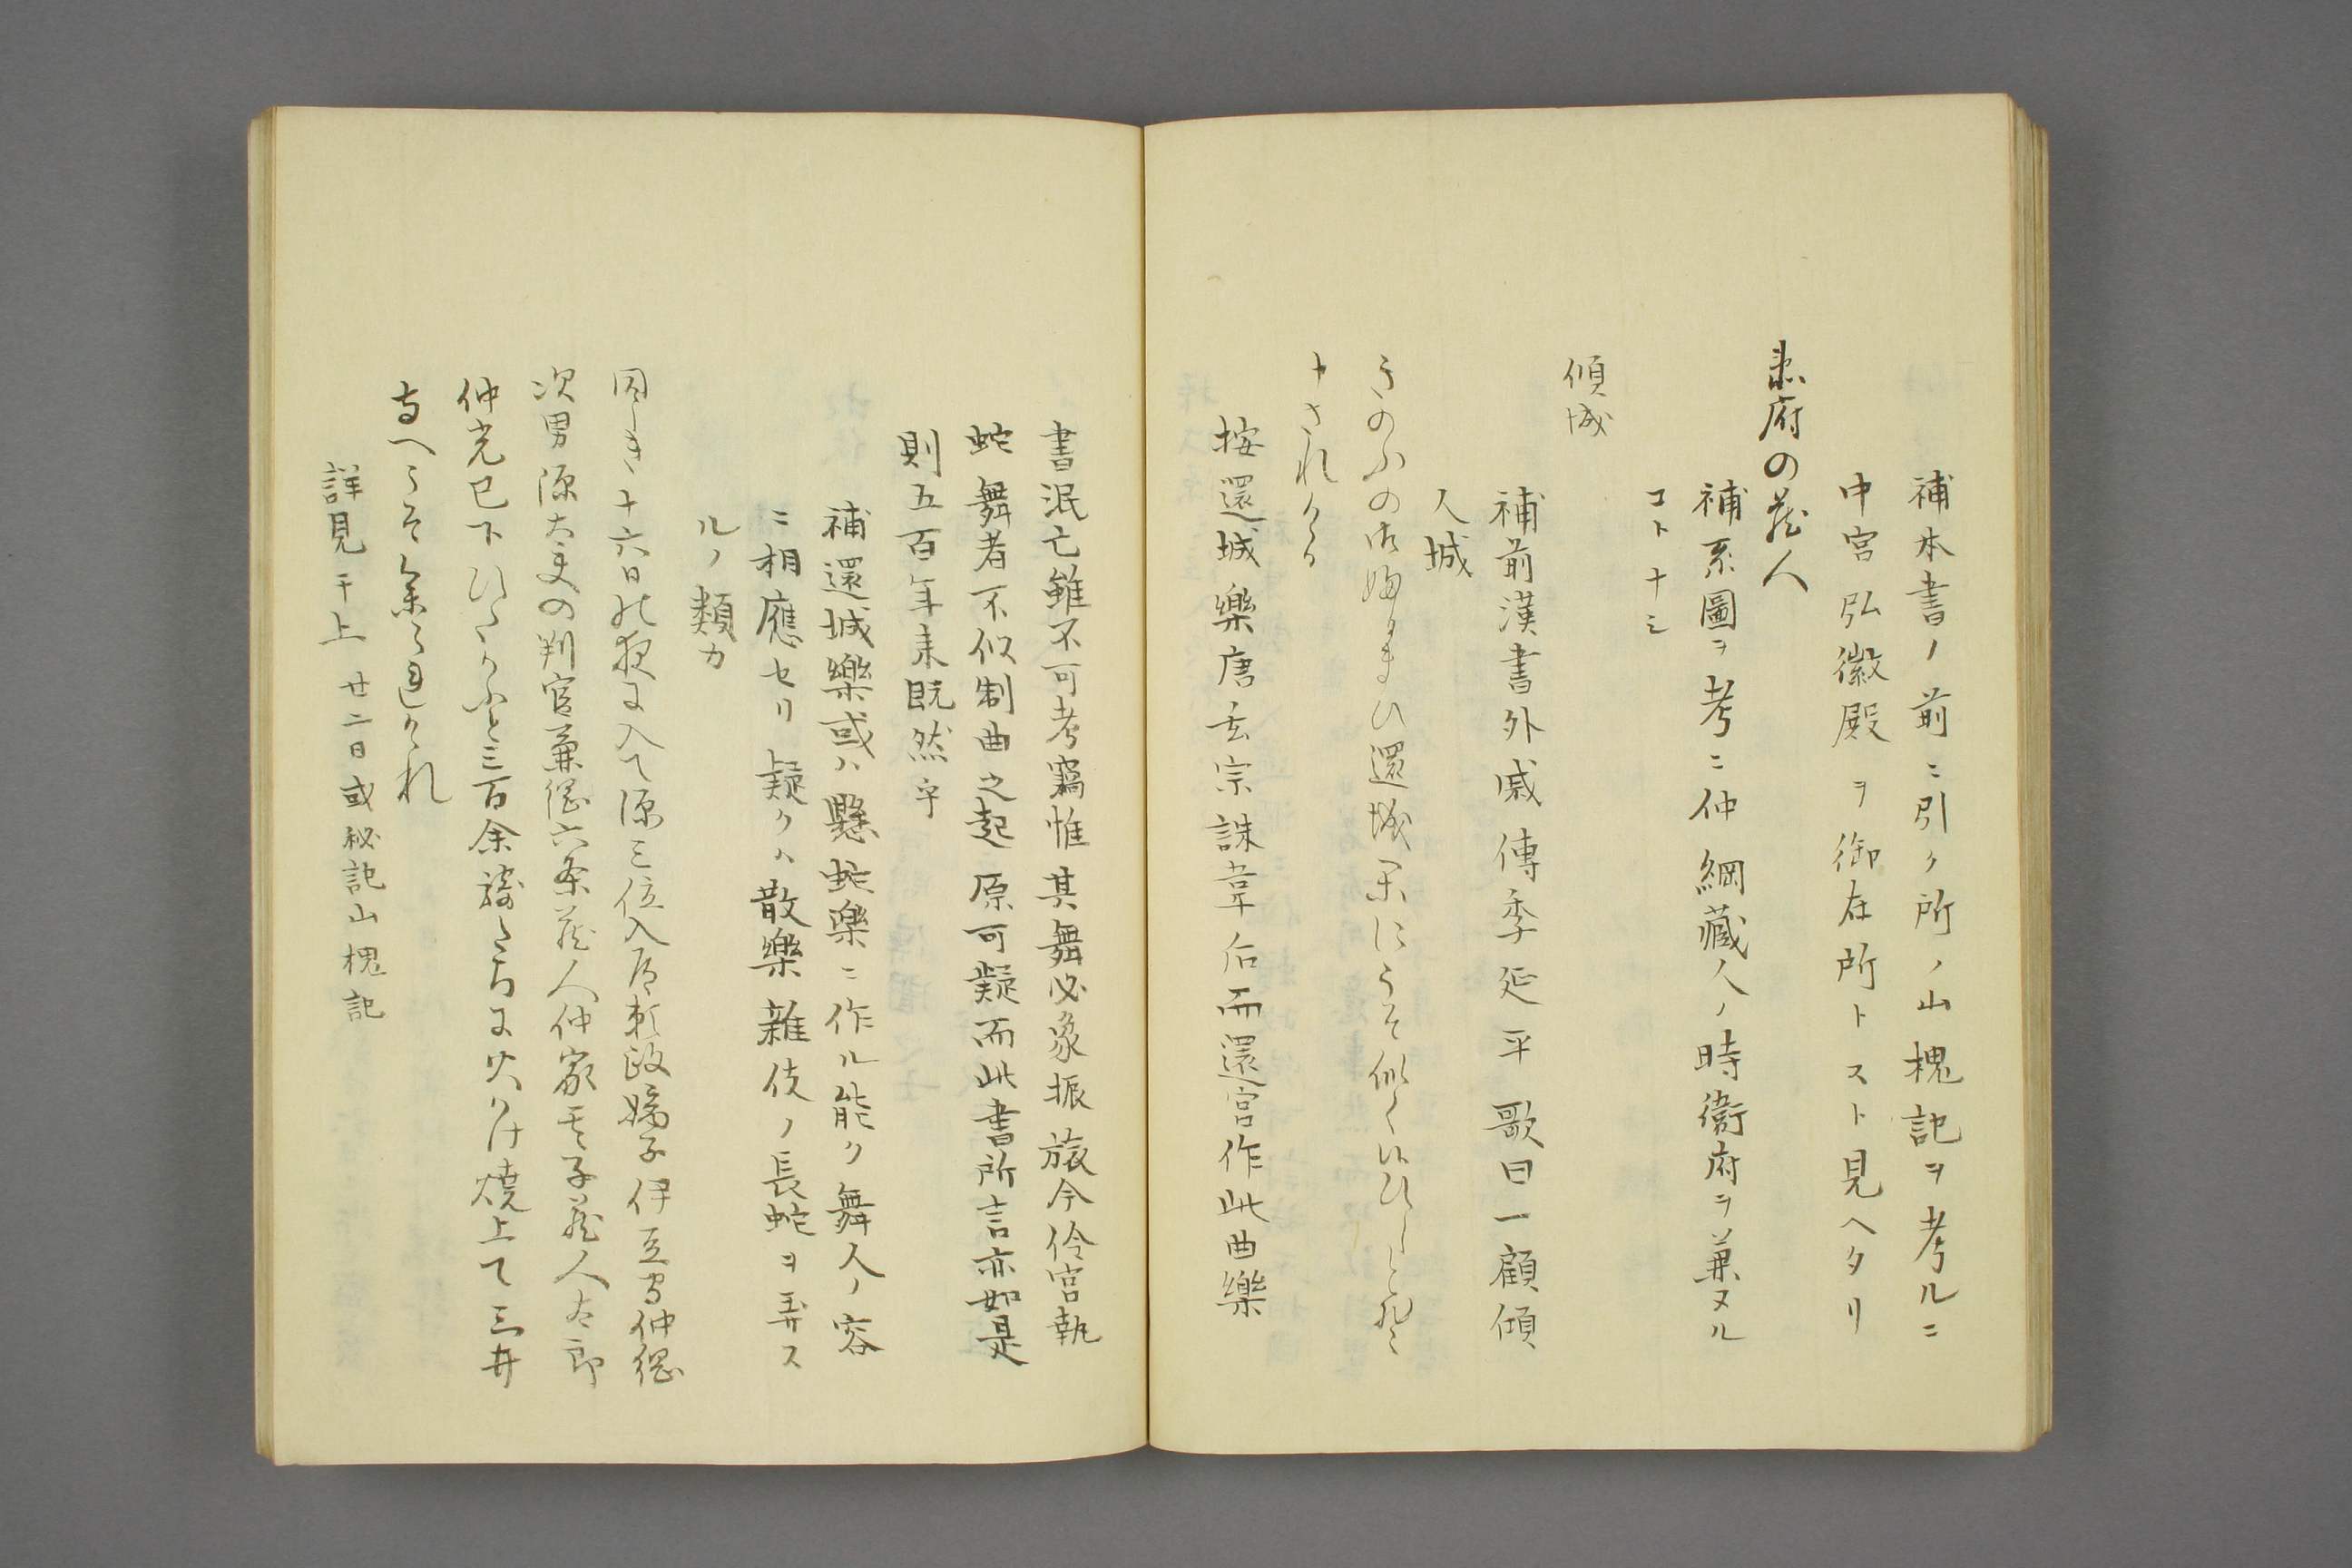 補本書ノ前ニ引ク所ノ山槐記ヲ考ルニ
中宮弘徽殿ヲ御在所トスト見ヘタリ
衛府の蔵人
補系圖ヲ考ニ仲綱藏人ノ時衞府ヲ兼ヌル
コトナシ
傾城
補前漢書外戚傳李延平歌曰一顧傾
人城
きのふの御ふるまひ還城楽にこそ似
申されける
按還城樂唐玄宗誅韋后而還宮作此曲樂
書泯亡雖不可考竊惟其舞必象振旅今伶宮執
蛇舞者不似制曲之起原可疑而此書所言亦如是
則五百年来既然乎
補還城樂或ハ懸蛇樂ニ作ル能ク舞人ノ容
ニ相應セリ疑クハ散樂雜伎ノ長蛇ヲ弄ス
ルノ類カ
同しき十六日の夜に入て源三位入道頼政嫡子伊豆守仲綱
次男源太夫の判官兼綱六条蔵人仲家其子蔵人太郎
仲光已下ひたかふと三百余騎たちに火かけ焼上て三井
寺へこそ参られけれ
詳見于上 廿二日或秘記山槐記